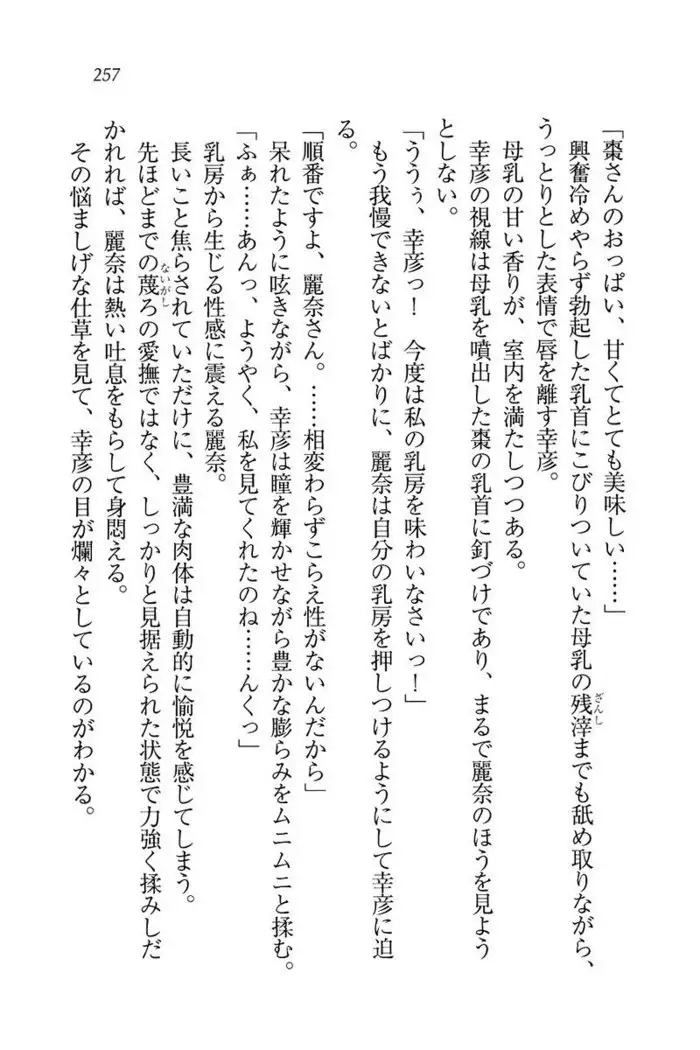 257
「棗さんのおっぱい、甘くてとても美味しい……」
興奮冷めやらず勃起した乳首にこびりついていた母乳の残滓までも舐め取りながら、
ざんし
うっとりとした表情で唇を離す幸彦。
母乳の甘い香りが、室内を満たしつつある。
幸彦の視線は母乳を噴出した棗の乳首に釘づけであり、まるで麗奈のほうを見よう
としない。
「ううぅ、幸彦っ！　今度は私の乳房を味わいなさいっ！」
もう我慢できないとばかりに、麗奈は自分の乳房を押しつけるようにして幸彦に迫
る。
「順番ですよ、麗奈さん。……相変わらずこらえ性がないんだから」
呆れたように呟きながら、幸彦は瞳を輝かせながら豊かな膨らみをムニムニと揉む。
「ふぁ……あんっ、ようやく、私を見てくれたのね……んくっ」
乳房から生じる性感に震える麗奈。
長いこと焦らされていただけに、豊満な肉体は自動的に愉悦を感じてしまう。
先ほどまでの蔑ろの愛撫ではなく、しっかりと見据えられた状態で力強く揉みしだ
ないがし
かれれば、麗奈は熱い吐息をもらして身悶える。
その悩ましげな仕草を見て、幸彦の目が爛々としているのがわかる。